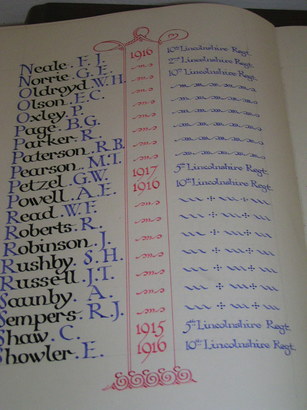 Neale. F. J. 1916 10th Lincolnshire Regt.
Norrie. G. E. 2nd Lincolnshire Regt.
Oldroyd. W. H. 10th Lincolnshire Regt.
Olson. E. C.
Oxley. P.
Page. B. G.
Parker. R.
Paterson. R. B.
Pearson. M. T.
Petzel. G. W. 1917 5th Lincolnshire Regt.
Powell. A. E. 1916 10th Lincolnshire Regt.
Read. W. F.
Roberts. R.
Robinson. J.
Rushby. S. H.
Russell. J. T.
Saunby. A.
Sempers. R. J.
Shaw. C. 1915 5th Lincolnshire Regt.
Showler. E. 1916 10th Lincolnshire Regt.